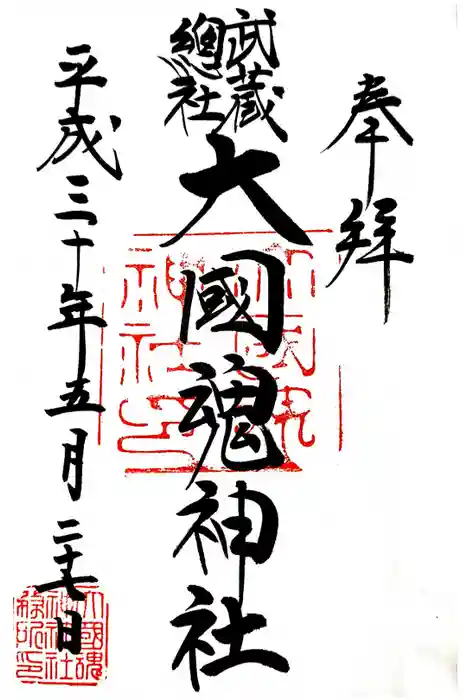 奉拝
武蔵
總社
大國魂神社
平成三十年五月二十七日
大國魂
神社印